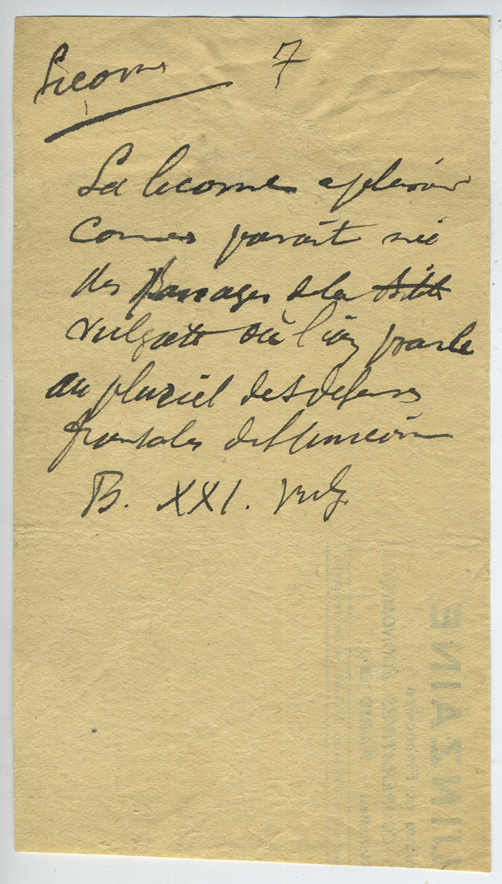 Licorne 7
La licorne a plusieurs
cornes parait née
des passages de la Bible
vulgate où l'on parle
au pluriel des défenses
frontales de l'unicorne
Ps. XXI. vulg.
UINZAINE